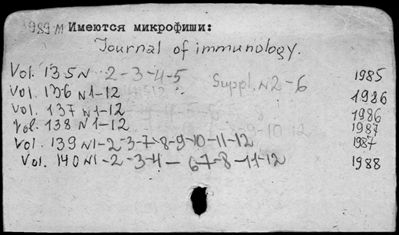 989-М Имеются микрофиши:
Journal of immunology.
Vol. 135 N 2-3-4-5 Suppl. N2-6 1985
Vol. 136 N1-12 1986
Vol. 137 N1-12 1986
Vol. 138 N1-12 1987
Vol. 139 N1-2-3-7-8-9-10-11-12 1987
Vol. 140 N1-2-3-4- 6-7-8-11-12 1988